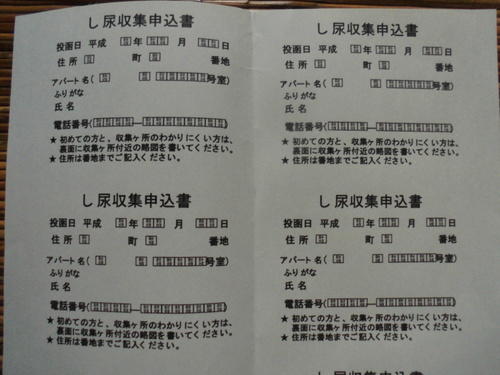 し尿収集申込書
投函日 平成 年 月 日
住所 町 番地
アパート名( 号室)
ふりがな
氏名
電話番号( — )
★初めての方と、収集ヶ所のわかりにくい方は、
裏面に収集ヶ所付近の略図を書いてください。
★住所は番地までご記入ください。
し尿収集申込書
投函日 平成 年 月 日
住所 町 番地
アパート名( 号室)
ふりがな
氏名
電話番号( — )
★初めての方と、収集ヶ所のわかりにくい方は、
裏面に収集ヶ所付近の略図を書いてください。
★住所は番地までご記入ください。
し尿収集申込書
投函日 平成 年 月 日
住所 町 番地
アパート名( 号室)
ふりがな
氏名
電話番号( — )
★初めての方と、収集ヶ所のわかりにくい方は、
裏面に収集ヶ所付近の略図を書いてください。
★住所は番地までご記入ください。
し尿収集申込書
投函日 平成 年 月 日
住所 町 番地
アパート名( 号室)
ふりがな
氏名
電話番号( — )
★初めての方と、収集ヶ所のわかりにくい方は、
裏面に収集ヶ所付近の略図を書いてください。
★住所は番地までご記入ください。